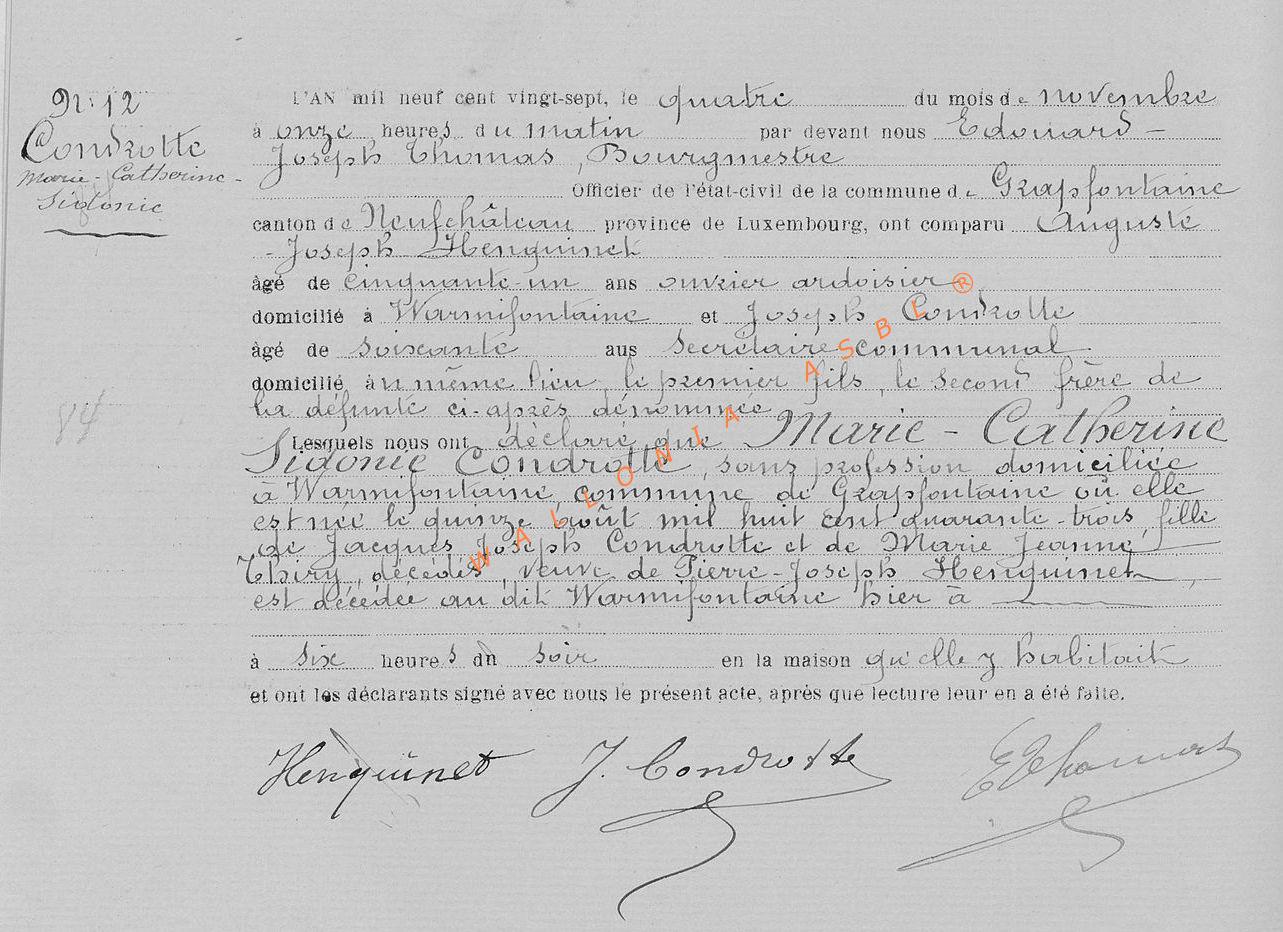 N: 12
Condrotte
Marie-Catherine-
Sidonie
84
L'AN mil neuf cent vingt-sept, le quatre du mois de novembre
à onze heures du matin par devant nous Edouard-
Joseph Thomas, Bourgmestre
Officier de l'état-civil de la commune de Grapfontaine
canton de Neufchâteau province de Luxembourg, ont comparu Auguste
- Joseph Henquinet
âgé de cinquante-un ans ouvrier ardoisier
domicilié à Warmifontaine et Joseph Condrotte
âgé de soixante ans Secrétaire communal
domicilié, au même lieu, le premier fils, le second frère de
la défunte ci-après dénommée
Lesquels nous ont déclaré que Marie-Catherine
Sidonie Condrotte, sans profession domiciliée
à Warmifontaine commune de Grapfontaine où elle
est née le quinze août mil huit cent quarante-trois, fille
de Jacques Joseph Condrotte et de Marie Jeanne
Thiry, décédés, veuve de Pierre-Joseph Henquinet,
est décédée au dit Warmifontaine hier à
à six heures du soir en la maison qu'elle y habitait
et ont les déclarants signé avec nous le présent acte, après que lecture leur en a été faite.
Henquinet J. Condrotte E Thomas
WALLONIA ASBL ®